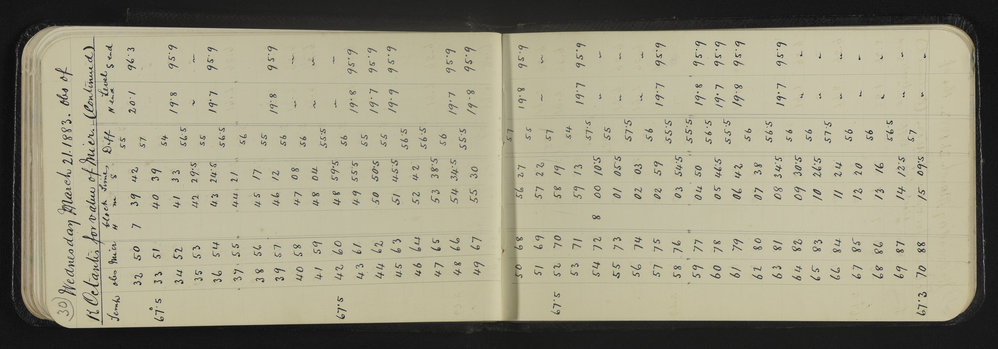 30 Wednesday March 21. 1883. obs of
R Octantis for value of Micr. (Continued)
Temp obs Micr Clock Time Diff Level
H m s N end S end
32 50 7 39 42 55 20.1 96.3
67°.5 33 51 40 39 57
34 52 41 33 54 19.8 95.9
35 53 42 29.5 56.5 ~ ~
36 54 43 24.5 55 19.7 95.9
37 55 44 21 56.5
38 56 45 17 56
39 57 46 12 55 19.8 95.9
40 58 47 08 56 ~ ~
41 59 48 04 56 ~ ~
67.5 42 60 48 59.5 55.5 ~ ~
43 61 49 55.5 56 19.8 95.9
44 62 50 50.5 55 19.7 95.9
45 63 51 45.5 55 19.9 95.9
46 64 52 42 56.5
47 65 53 38.5 56.5
48 66 54 34.5 56 19.7 95.9
49 67 55 30 55.5 19.8 95.9
50 68 56 27 57 19.8 95.9
51 69 57 22 55 ~ ~
67.5 52 70 58 19 57
53 71 59 13 54 19.7 95.9
54 72 8 00 10.5 57.5 ~ ~
55 73 01 05.5 55 ~ ~
56 74 02 03 57.5 ~ ~
57 75 02 59 56 19.7 95.9
58 76 03 54.5 55.5
59 77 04 50 55.5 19.8 95.9
60 78 05 46.5 56.5 19.7 95.9
61 79 06 42 55.5 19.8 95.9
62 80 07 38 56
63 81 08 34.5 56.5 19.7 95.9
64 82 09 30.5 56 ~ ~
65 83 10 26.5 56 ~ ~
66 84 11 24 57.5 ~ ~
67 85 12 20 56 ~ ~
68 86 13 16 56 ~ ~
69 87 14 12.5 56.5 ~ ~
67.3 70 88 15 09.5 57 ~ ~